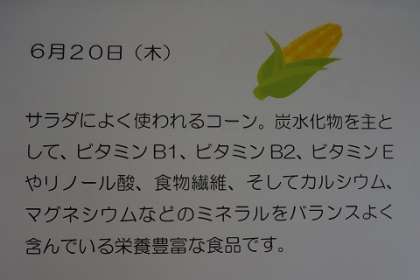 6月20日(木)
サラダによく使われるコーン。炭水化物を主と
して、ビタミンB1、ビタミンB2、ビタミンE
やリノール酸、食物繊維、そしてカルシウム、
マグネシウムなどのミネラルをバランスよく
含んでいる栄養豊富な食品です。